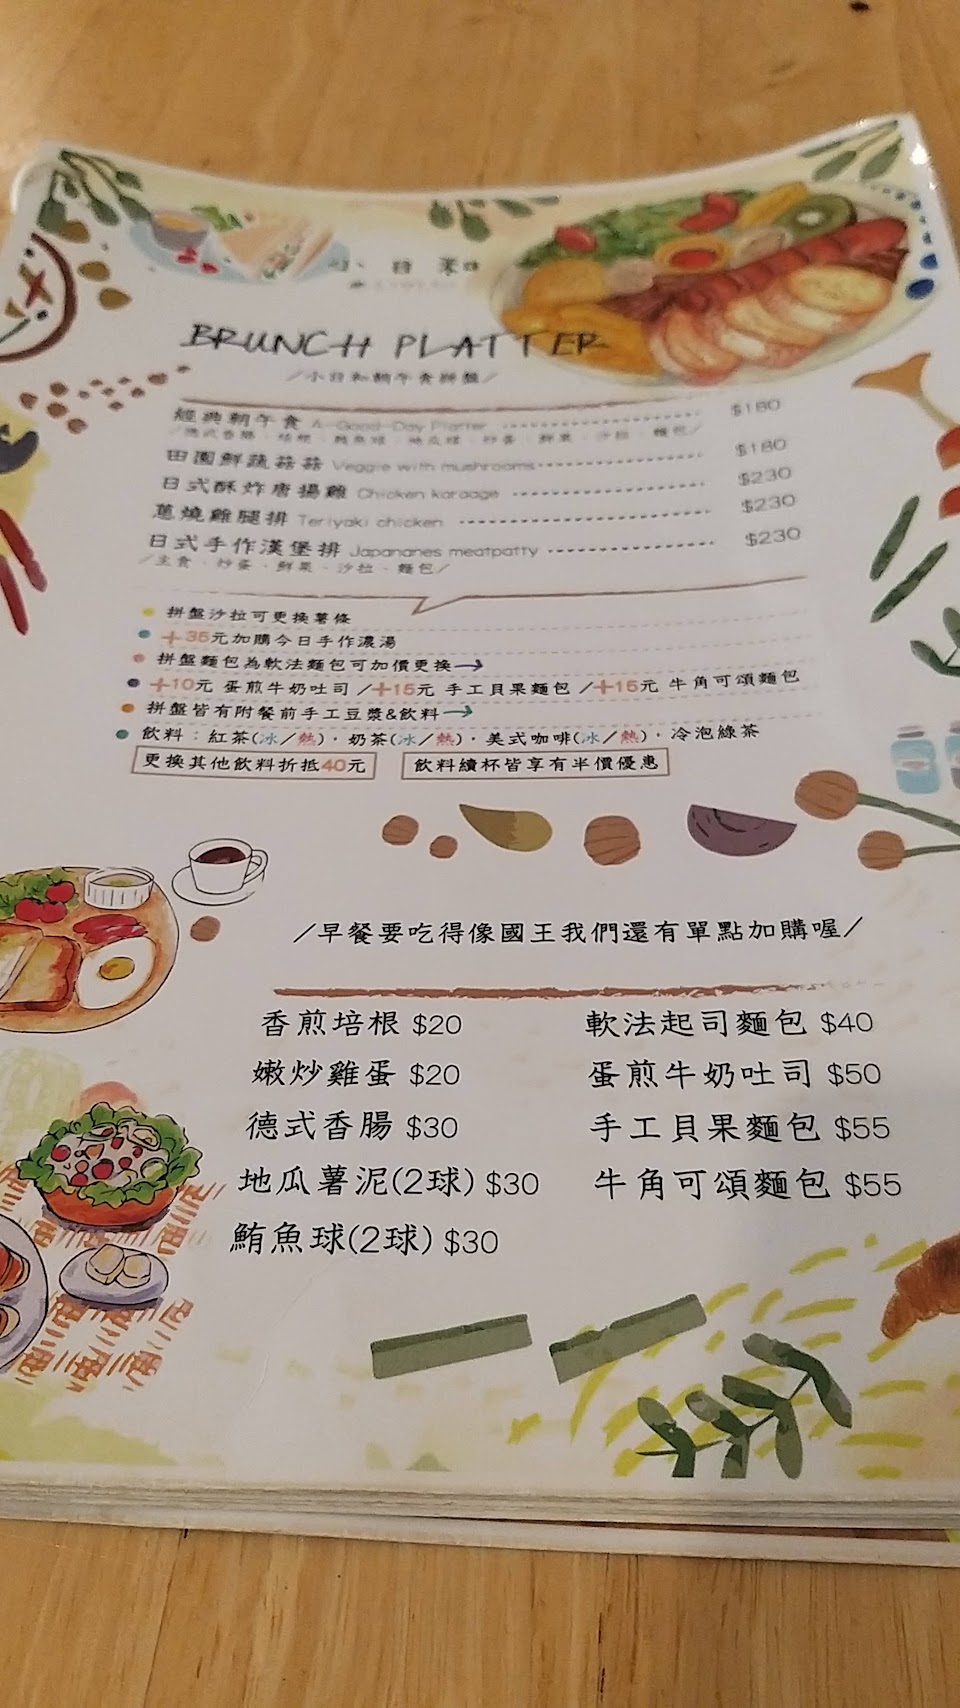 小日和
BRUNCH PLATTER
／小日和朝午食拼盤／
經典朝午食 A-Good-Day Platter $180
／德式香腸．培根．鮪魚球．地瓜球．炒蛋．鮮果．沙拉．麵包／
田園鮮蔬菇菇 Veggie with mushrooms $180
日式酥炸唐揚雞 Chicken karaage $230
蔥燒雞腿排 Teriyaki chicken $230
日式手作漢堡排 Japananes meatpatty $230
／主食．炒蛋．鮮果．沙拉．麵包／
拼盤沙拉可更換薯條
+35元加購今日手作濃湯
拼盤麵包為軟法麵包可加價更換→
+10元 蛋煎牛奶吐司 /+15元 手工貝果麵包 /+15元 牛角可頌麵包
拼盤皆有附餐前手工豆漿&飲料→
飲料：紅茶(冰／熱)．奶茶(冰／熱)．美式咖啡(冰／熱)．冷泡綠茶
更換其他飲料折抵40元 飲料續杯皆享有半價優惠
／早餐要吃得像國王我們還有單點加購喔／
香煎培根 $20
嫩炒雞蛋 $20
德式香腸 $30
地瓜薯泥(2球) $30
鮪魚球(2球) $30
軟法起司麵包 $40
蛋煎牛奶吐司 $50
手工貝果麵包 $55
牛角可頌麵包 $55